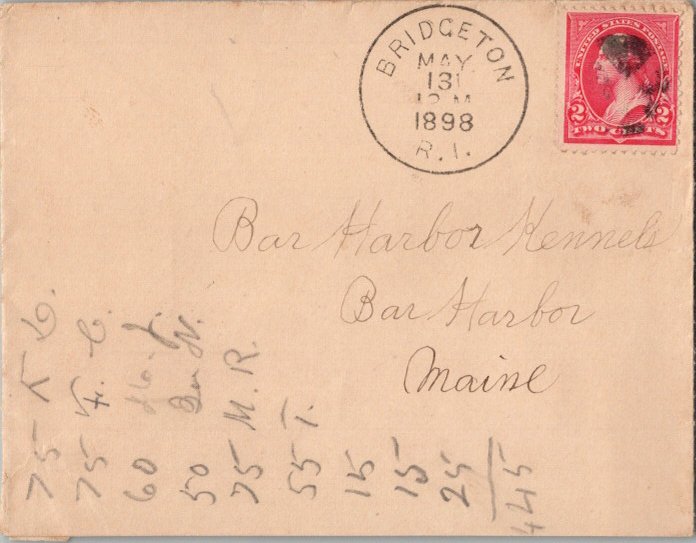 BRIDGETON
MAY
131
12 M
1898
R.I.
UNITED STATES POSTAGE
2 2
TWO CENTS
Bar Harbor Kennels
Bar Harbor
Maine
75
75
60
50
75 M.R.
55 T.
15
15
25
445